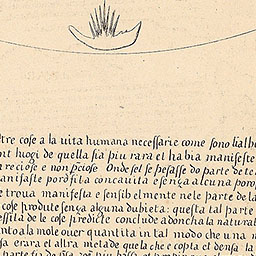 tre cose a la uita humana necessarie come sono lialbe
nt luogi de quella sia piu rara et habia manifeste
reciose e non pciose Onde se se pesasse do parte de te
antfaste porosita concauita e senza alcuna poro
e troua manifesta e sensibelmente nele parte de la
cose produte senza alguna dubieta: questa tal parte
essita de le cose predicte conclude adoncha la natural
ento a la mole ouer quantita in tal modo che una m
sa erara el altra metade quela che e copta el densa la